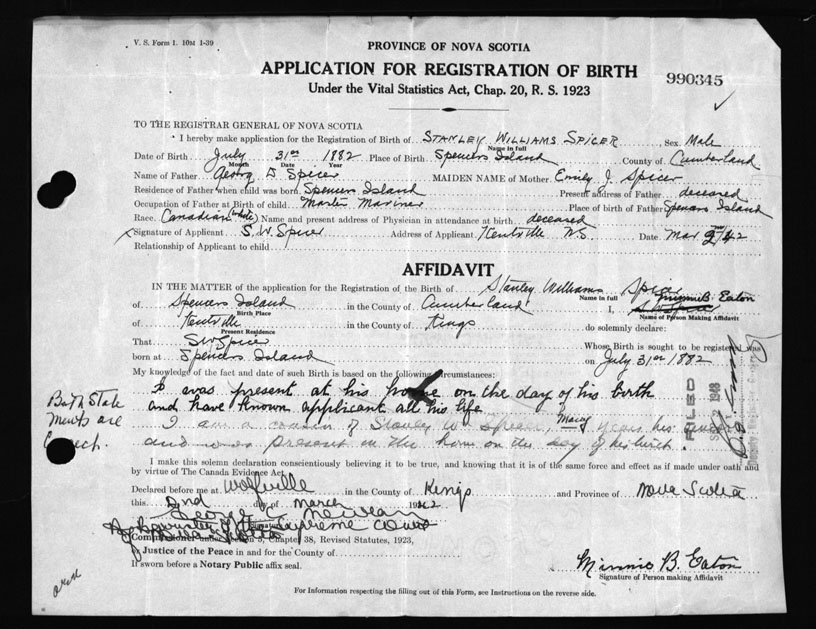 V. S. Form 1. 10M 1-39
PROVINCE OF NOVA SCOTIA
APPLICATION FOR REGISTRATION OF BIRTH
990345
Under the Vital Statistics Act, Chap. 20, R. S. 1923
TO THE REGISTRAR GENERAL OF NOVA SCOTIA
I hereby make application for the Registration of Birth of STANLEY WILLIAMS SPICER Sex Male
Name in full
Date of Birth July 31st 1882 Place of Birth Spencers Island County of Cumberland
Month Date Year
Name of Father George D Spicer MAIDEN NAME of Mother Emily J. Spicer
Residence of Father when child was born Spencers Island Present address of Father deceased
Occupation of Father at Birth of child Master Mariner Place of birth of Father Spencers Island
Race Canadian (white) Name and present address of Physician in attendance at birth deceased
Signature of Applicant S.W. Spicer Address of Applicant Kentville N.S. Date Mar 2nd/42
Relationship of Applicant to child
AFFIDAVIT
IN THE MATTER of the application for the Registration of the Birth of Stanley Williams Spicer
Name in full
of Spencers Island in the County of Cumberland I, Minnie B. Eaton
Birth Place Name of Person Making Affidavit
of Kentville in the County of Kings do solemnly declare:
Present Residence
That SW Spicer Whose Birth is sought to be registered was
born at Spencers Island on July 31st 1882
My knowledge of the fact and date of such Birth is based on the following circumstances:
I was present at his home on the day of his birth
and have known applicant all his life
I am a cousin of Stanley W. Spicer, many years his
and was present in the home on the day of his birth
Both State
ments are
Correct.
FILED
1948
I make this solemn declaration conscientiously believing it to be true, and knowing that it is of the same force and effect as if made under oath and
by virtue of The Canada Evidence Act,
Declared before me at Wolfville in the County of Kings and Province of Nova Scotia
this 2nd day of March 1942
A Barrister of the Supreme Court
Commissioner under Section 3, Chapter 38, Revised Statutes, 1923,
or Justice of the Peace in and for the County of
If sworn before a Notary Public affix seal.
Minnie B. Eaton
Signature of Person making Affidavit
For Information respecting the filling out of this Form, see Instructions on the reverse side.